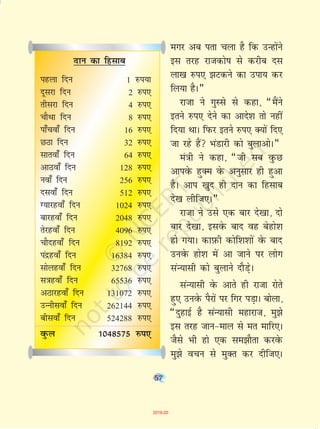 दान का हिसाब
पहला दिन 1 रुपया
दूसरा दिन 2 रुपए
तीसरा दिन 4 रुपए
चौथा दिन 8 रुपए
पाँचवाँ दिन 16 रुपए
छठा दिन 32 रुपए
सातवाँ दिन 64 रुपए
आठवाँ दिन 128 रुपए
नवाँ दिन 256 रुपए
दसवाँ दिन 512 रुपए
ग्यारहवाँ दिन 1024 रुपए
बारहवाँ दिन 2048 रुपए
तेरहवाँ दिन 4096 रुपए
चौदहवाँ दिन 8192 रुपए
पंद्रहवाँ दिन 16384 रुपए
सोलहवाँ दिन 32768 रुपए
सत्रहवाँ दिन 65536 रुपए
अठारहवाँ दिन 131072 रुपए
उन्नीसवाँ दिन 262144 रुपए
बीसवाँ दिन 524288 रुपए
कुल 1048575 रुपए
मगर अब पता चला है कि उन्होंने
इस तरह राजकोष से करीब दस
लाख रुपए झटकने का उपाय कर
लिया है।”
राजा ने गुस्से से कहा, “मैंने
इतने रुपए देने का आदेश तो नहीं
दिया था। फिर इतने रुपए क्यों दिए
जा रहे हैं? भंडारी को बुलाओ।”
मंत्री ने कहा, “जी सब कुछ
आपके हुक्म के अनुसार ही हुआ
है। आप खुद ही दान का हिसाब
देख लीजिए।”
राजा ने उसे एक बार देखा, दो
बार देखा, इसके बाद वह बेहोश
हो गया। काफ़ी कोशिशों के बाद
उनके होश में आ जाने पर लोग
संन्यासी को बुलाने दौड़े।
संन्यासी के आते ही राजा रोते
हुए उनके पैरों पर गिर पड़ा। बोला,
“दुहाई है संन्यासी महाराज, मुझे
इस तरह जान-माल से मत मारिए।
जैसे भी हो एक समझौता करके
मुझे वचन से मुक्त कर दीजिए।
57
2019-20